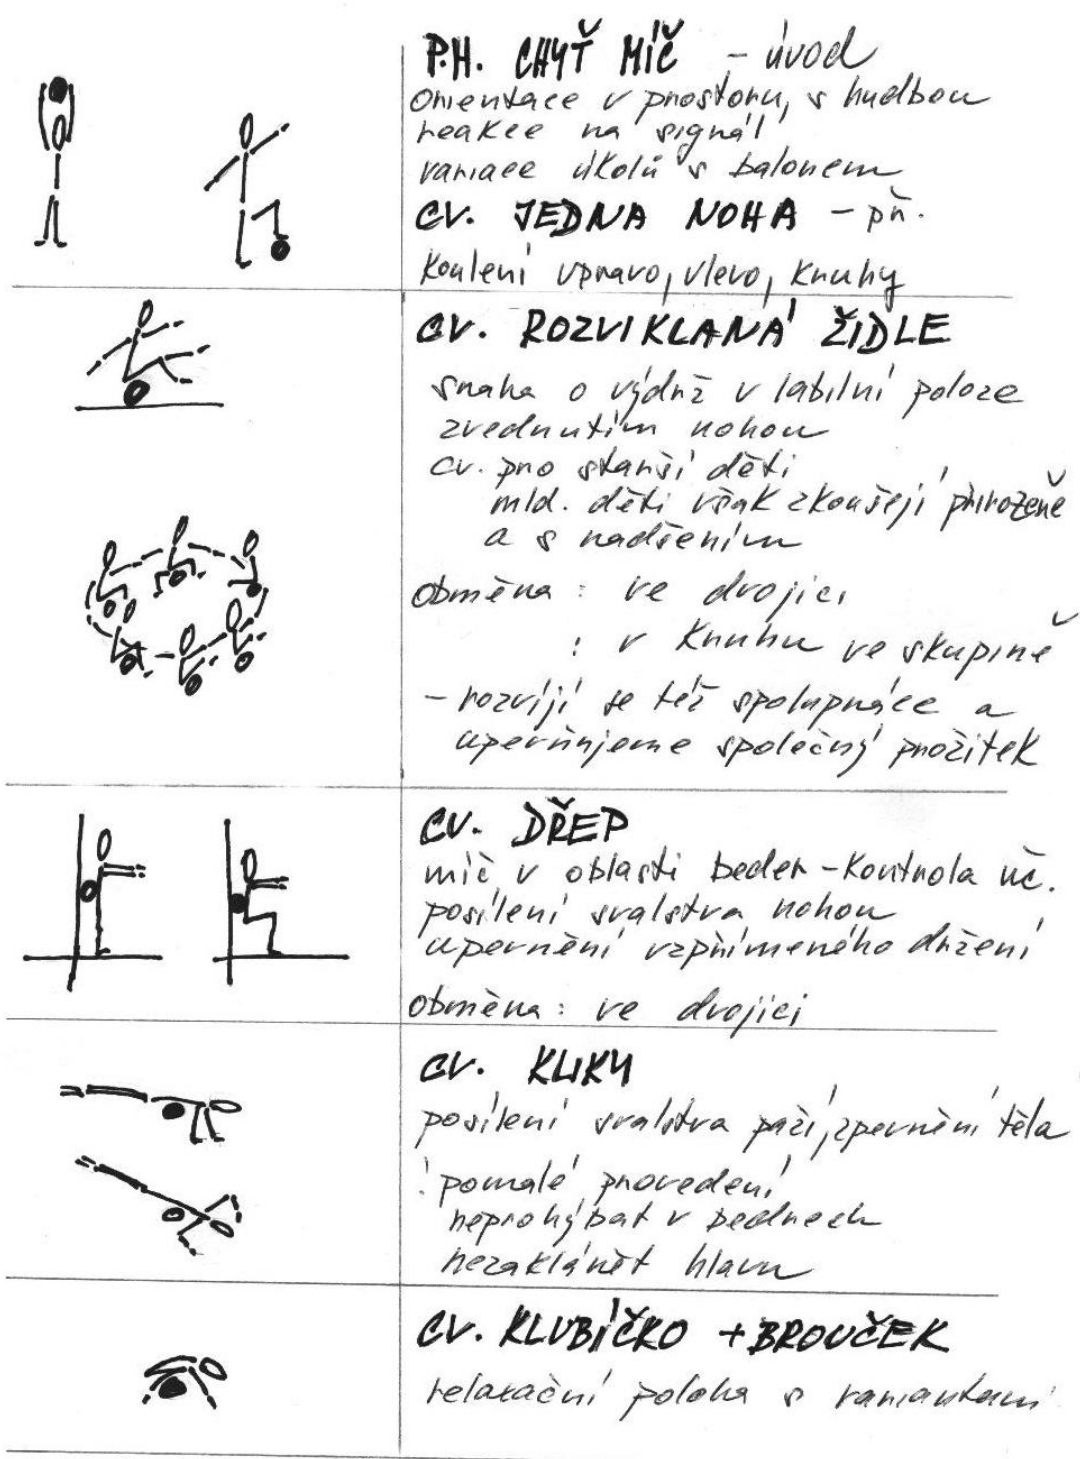 P.H. CHYŤ MÍČ - úvod
orientace v prostoru, s hudbou
reakce na signál
variace úkolů s balonem
CV. JEDNA NOHA - př.
koulení vpravo, vlevo, kruhy
CV. ROZVIKLANÁ ŽIDLE
snaha o výdrž v labilní poloze
zvednutím nohou
cv. pro starší děti
mld. děti však zkoušejí přirozeně
a s nadšením
obměna: ve dvojici
: v kruhu ve skupině
- rozvíjí se též spolupráce a
upevňujeme společný prožitek
CV. DŘEP
míč v oblasti beder - kontrola uč.
posílení svalstva nohou
upevnění vzpřímeného držení
obměna: ve dvojici
CV. KLIKY
posílení svalstva paží, zpevnění těla
! pomalé provedení
neprohýbat v bedrech
nezaklánět hlavu
CV. KLUBÍČKO + BROUČEK
relaxační poloha s variantami